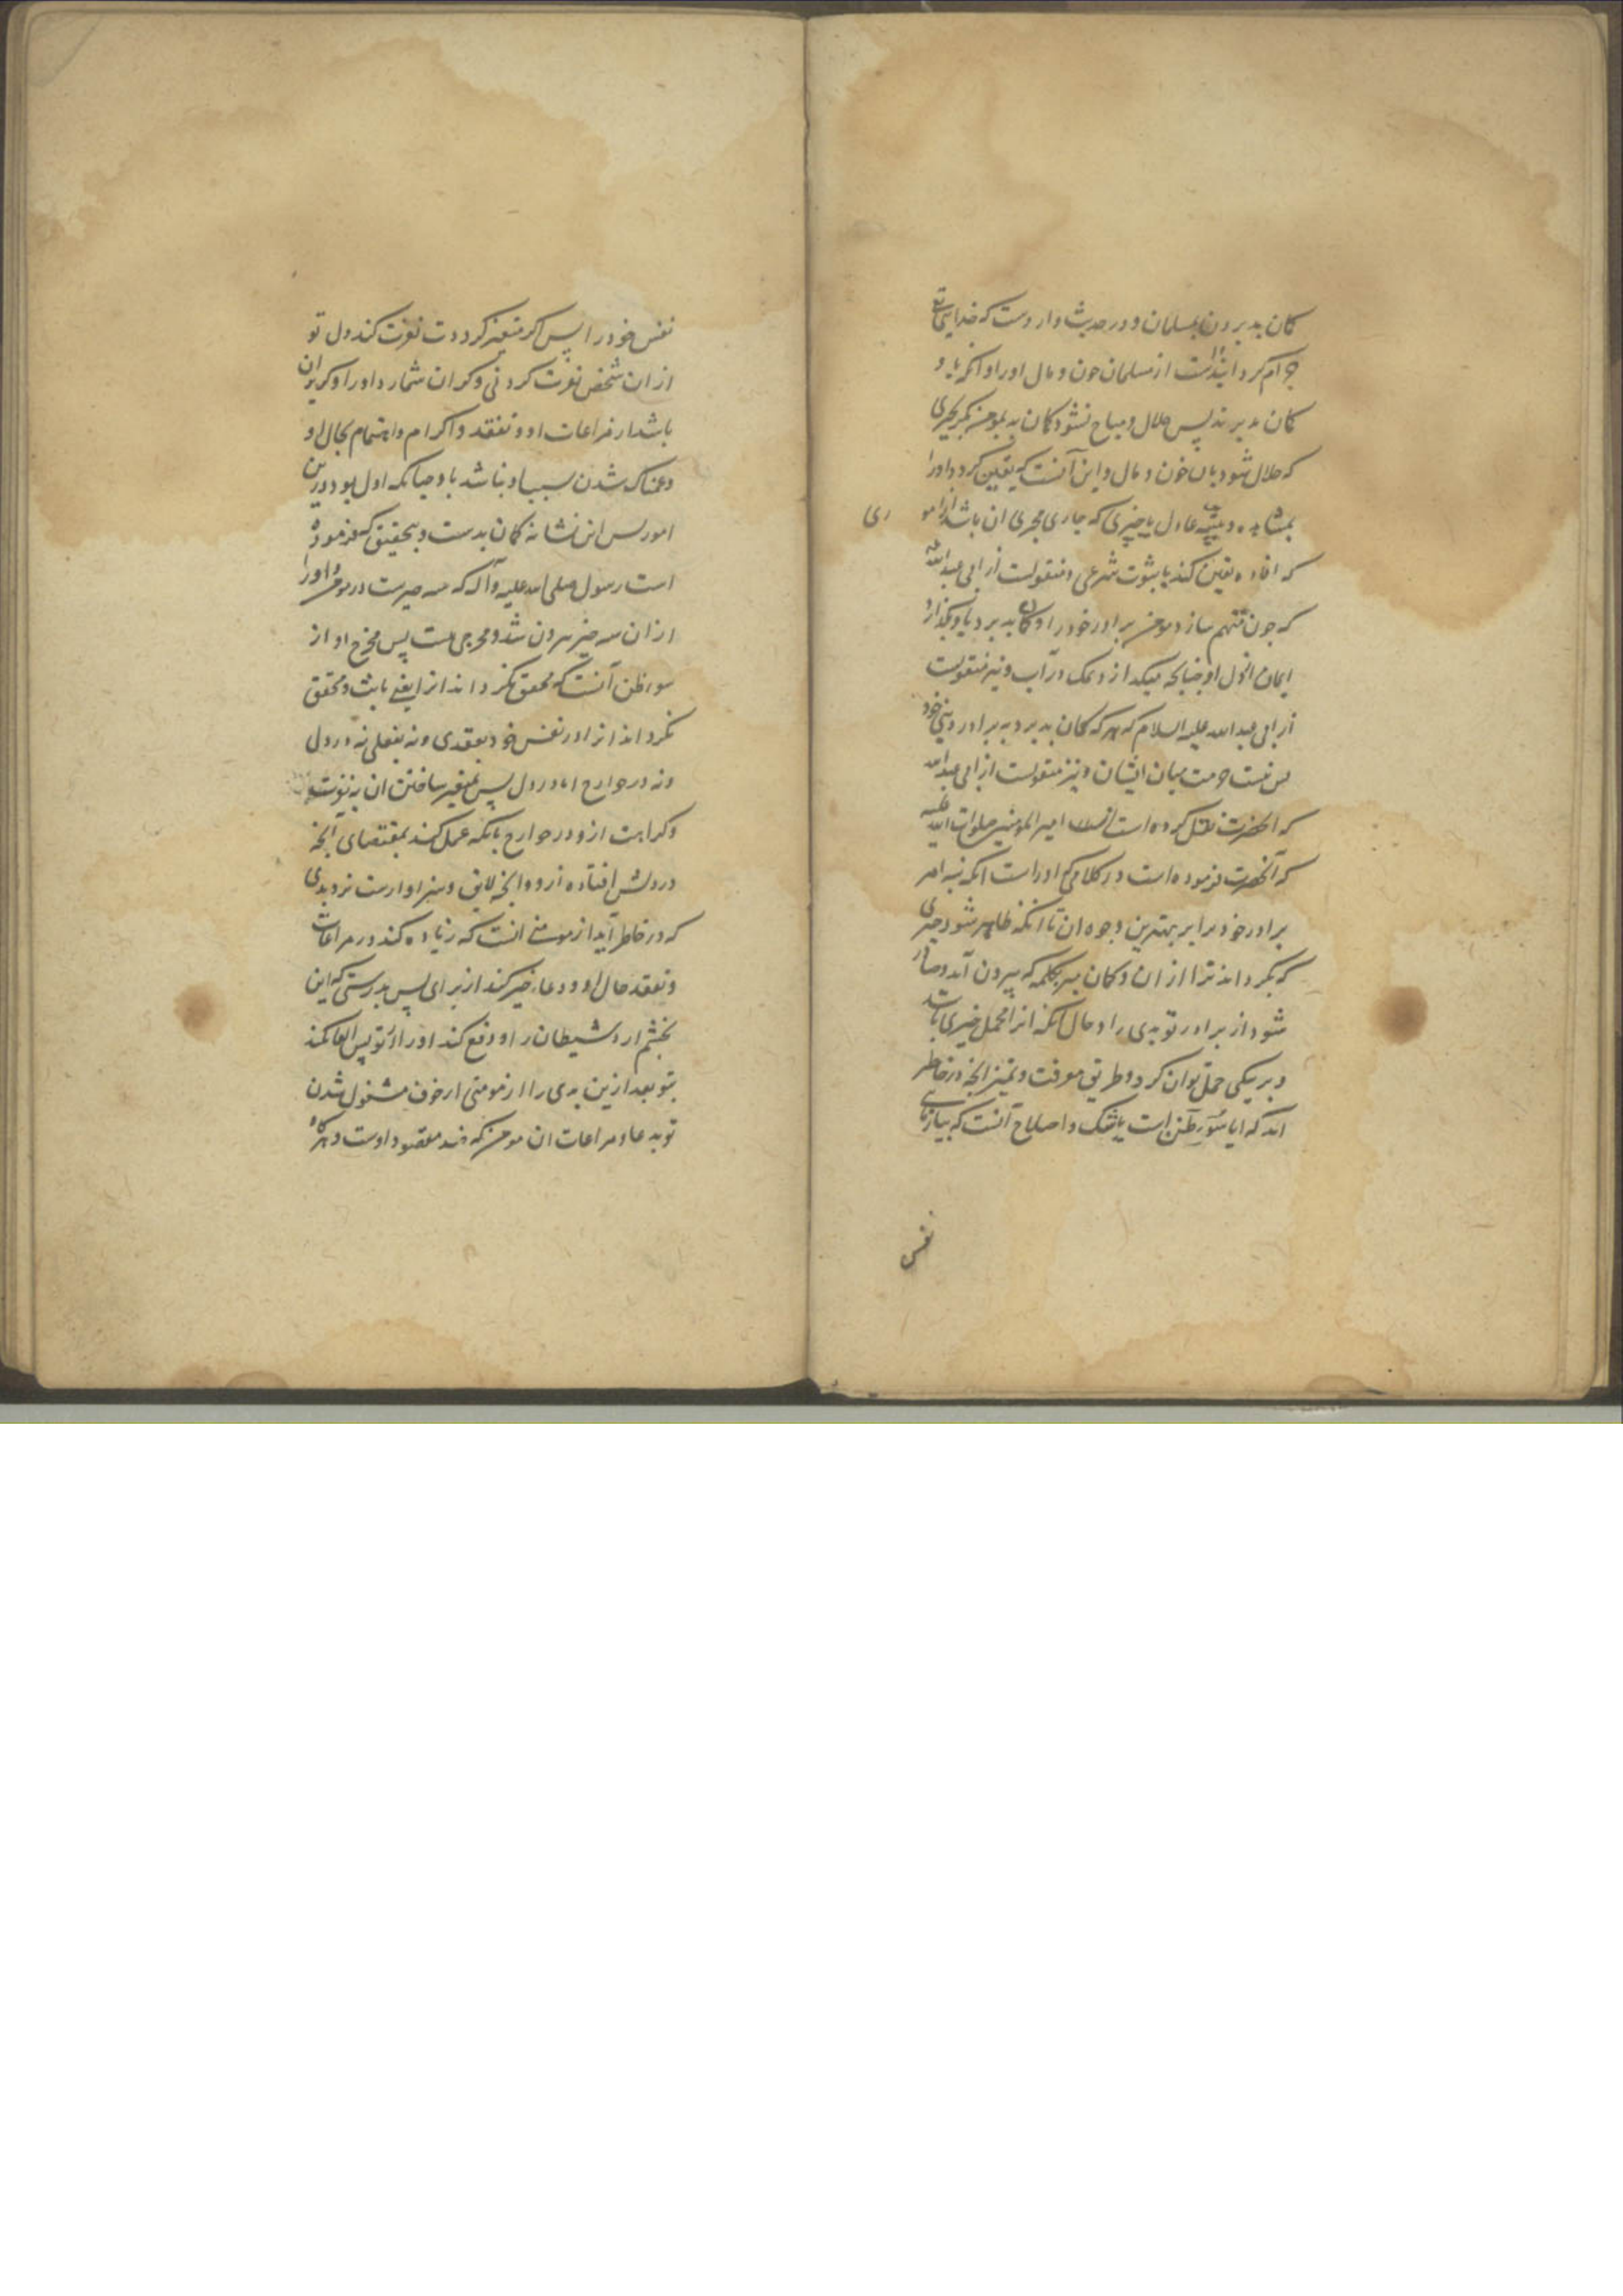 کمان بد بردن بمسلمان و در حدیث وارد ست که خدایتعالی
حرام کردانیده است از مسلمان خون و مال او را و آنکه باو
کمان بد برند پس حلال و مباح نشود کمان بد بمومن مکر بچیزی
که حلال شود بآن خون و مال و این آنست که یقین کردد او را
بمشاهده و بینه عادل یا چیزی که جاری مجری ان باشد از امو
ری
که افاده یقین کند یا بثبوت شرعی و منقولست از ابی عبدالله
که چون متهم سازد مومن برادر خود را و کمان بد برد باو بکدازد
ایمان از دل او چنانچه میکدازد نمک در آب و نیز منقولست
از ابی عبدالله علیه السلام که هر که کمان بد برد به برادر دینی خود
پس نیست حرمت میان ایشان و نیز منقولست از ابی عبدالله
که آنحضرت نقل کرده است از امیر المومنین صلوات الله علیه
که آنحضرت فرموده است در کلامی که او راست آنکه بنه امر
برادر خود را بر بهترین وجوه ان تا آنکه ظاهر شود چیزی
که بکرداند ترا از ان و کمان مبر بکلمه که بیرون آید و صادر
شود از برادر تو بدی را و حال آنکه آنرا محمل خیری باشد
و بر نیکی حمل توان کرد و طریق معرفت و تمیز آنچه در خاطر
آید که ایا سوء ظن است یا شک و اصلاح آنست که بیازمایی
نفس
نفس خود را پس اکر متغیر کردد ت نفرت کند دل تو
از ان شخص نفرت کردنی و کران شمارد او را و کریزان
باشد از مراعات او و تفقد و اکرام و اهتمام بحال او
و غمناک شدن بسبب او نباشد با و چنانکه اول بود در این
امور پس این نشانه کمان بدست و بتحقیق که فرموده
است رسول صلی الله علیه وآله که سه چیزست در مومن و او را
از ان سه چیز بیرون شد و مخرجی هست پس مخرج او از
سوء ظن آنست که محقق نکرداند انرا یعنی ثابت و محقق
نکرداند انرا در نفس خود بعقدی و نه بفعلی نه در دل
و نه در جوارح اما در دل پس بتغیر ساختن ان به نفرت
و کراهت از و در جوارح بانکه عمل کند بمقتضای آنچه
در دلش افتاده از و و آنچه لایق و سزاوارست نزد بدی
که در خاطر آید از مومنی انست که زیاده کند در مراعات
و تفقد حال او و دعاء خیر کند از برای پس بدرستی که این
بخشم ارد شیطان را و دفع کند او را از تو پس القا نکند
بتو بعد ازین بدی را از مومنی از خوف مشغول شدن
تو بدعا و مراعات ان مومن که ضد مقصود اوست و هرکاه